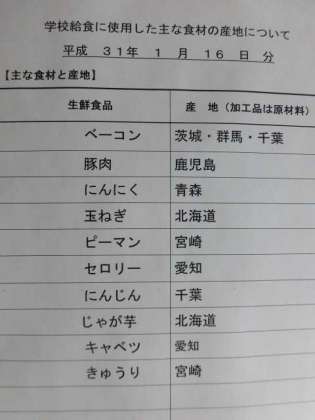 学校給食に使用した主な食材の産地について
平成 31年 1 月 16 日 分
【主な食材と産地】
生鮮食品 産 地（加工品は原材料）
ベーコン 茨城・群馬・千葉
豚肉 鹿児島
にんにく 青森
玉ねぎ 北海道
ピーマン 宮崎
セロリー 愛知
にんじん 千葉
じゃが芋 北海道
キャベツ 愛知
きゅうり 宮崎